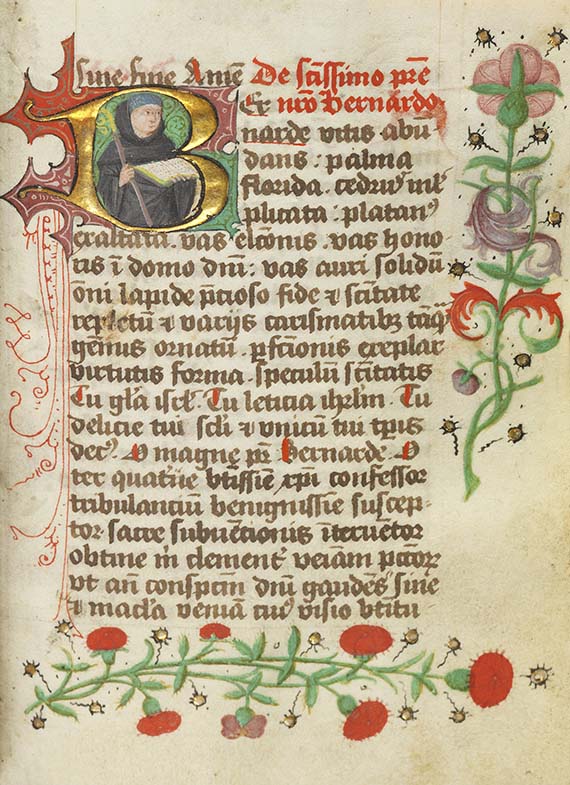 sine fine Amē De scīssimo pr̄e
Ex nr̄o Bernardo
narde vitis abū
dans . palma
florida . cedrus ml̄
plicata . platanꝰ
exaltata . vas elc̄onis . vas hono
ris ī domo dn̄i : vas auri solidū
oni lapide p̄cioso fide ⁊ sc̄itate
repletū ⁊ varijs carismatibꝫ tāqͣ
gemmis ornatū . ꝑfc̄ionis exēplar
virtutis forma . speculū sc̄itatis
Tu gl̄a isrl̄ . Tu leticia ihrlm̄ . Tu
delicie tui scl̄i ⁊ vnicū tui tꝑis
decꝰ . O magne pr̄ Bernarde . O
ter quaterqꝫ btīssīe xp̄i confessor
tribulanciū benignissīe suscep
tor . sacre subuēcionis
obtine in clement veniam pctōꝝ
vt añ conspcm̄ dn̄i gaudēs sine
⁊ macl̄a veniā tuꝰ visio btītu